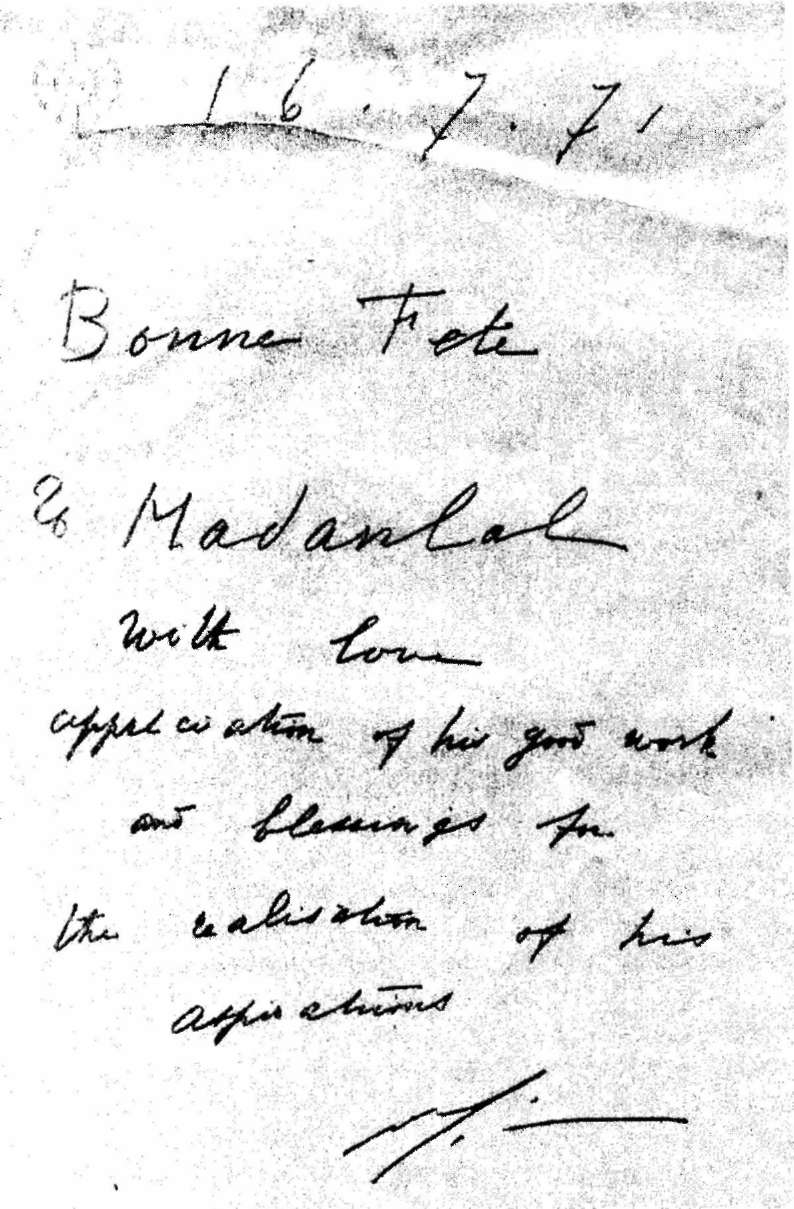 16.7.71
Bonne Fete
to Madanlal
with love
appreciation of his good work
and blessings for
the realisation of his
aspirations